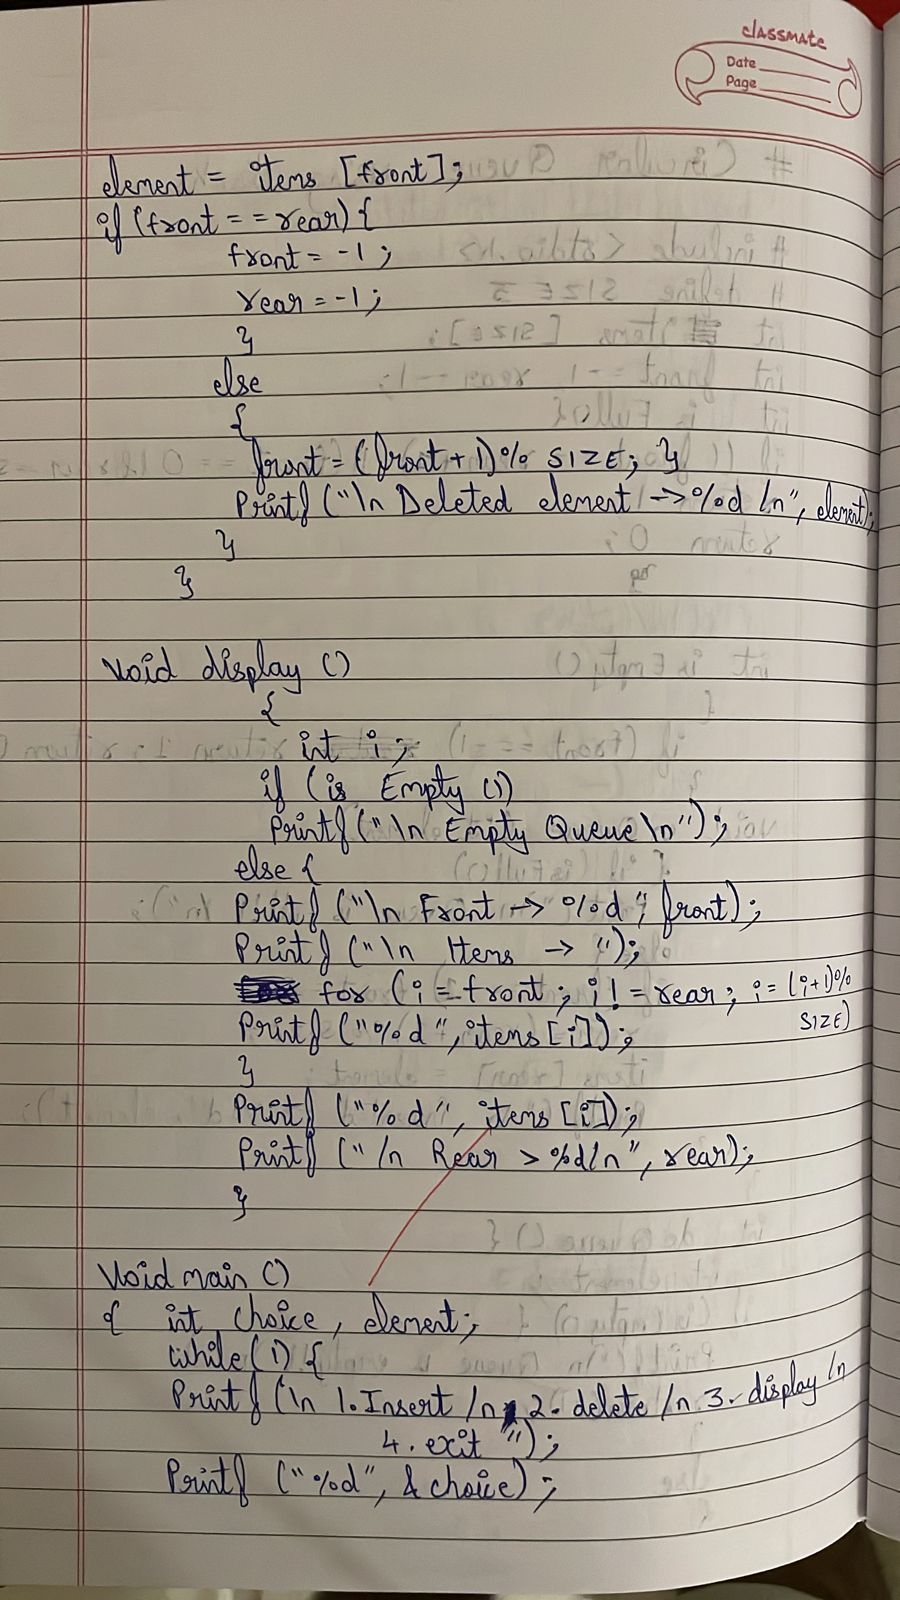 classmate
Date
Page
element = items [front];
if (front == rear) {
front = -1;
rear = -1;
}
else
{
front = (front + 1) % SIZE; }
Printf ("\n Deleted element -> %d /n", element);
}
}
Void display ()
{
int i;
if (is Empty ())
Printf ("\n Empty Queue \n");
else {
Printf ("\n Front -> %d ", front);
Printf ("\n Items -> ");
for (i = front; i != rear; i = (i+1)%
SIZE)
Printf ("%d", items [i]);
}
Printf ("%d", items [i]);
Printf ("/n Rear > %d/n", rear);
}
Void main ()
{ int choice, element;
while (1) {
Printf (\n 1. Insert /n 2. delete /n 3. display /n
4. exit ");
Printf ("%d", & choice);